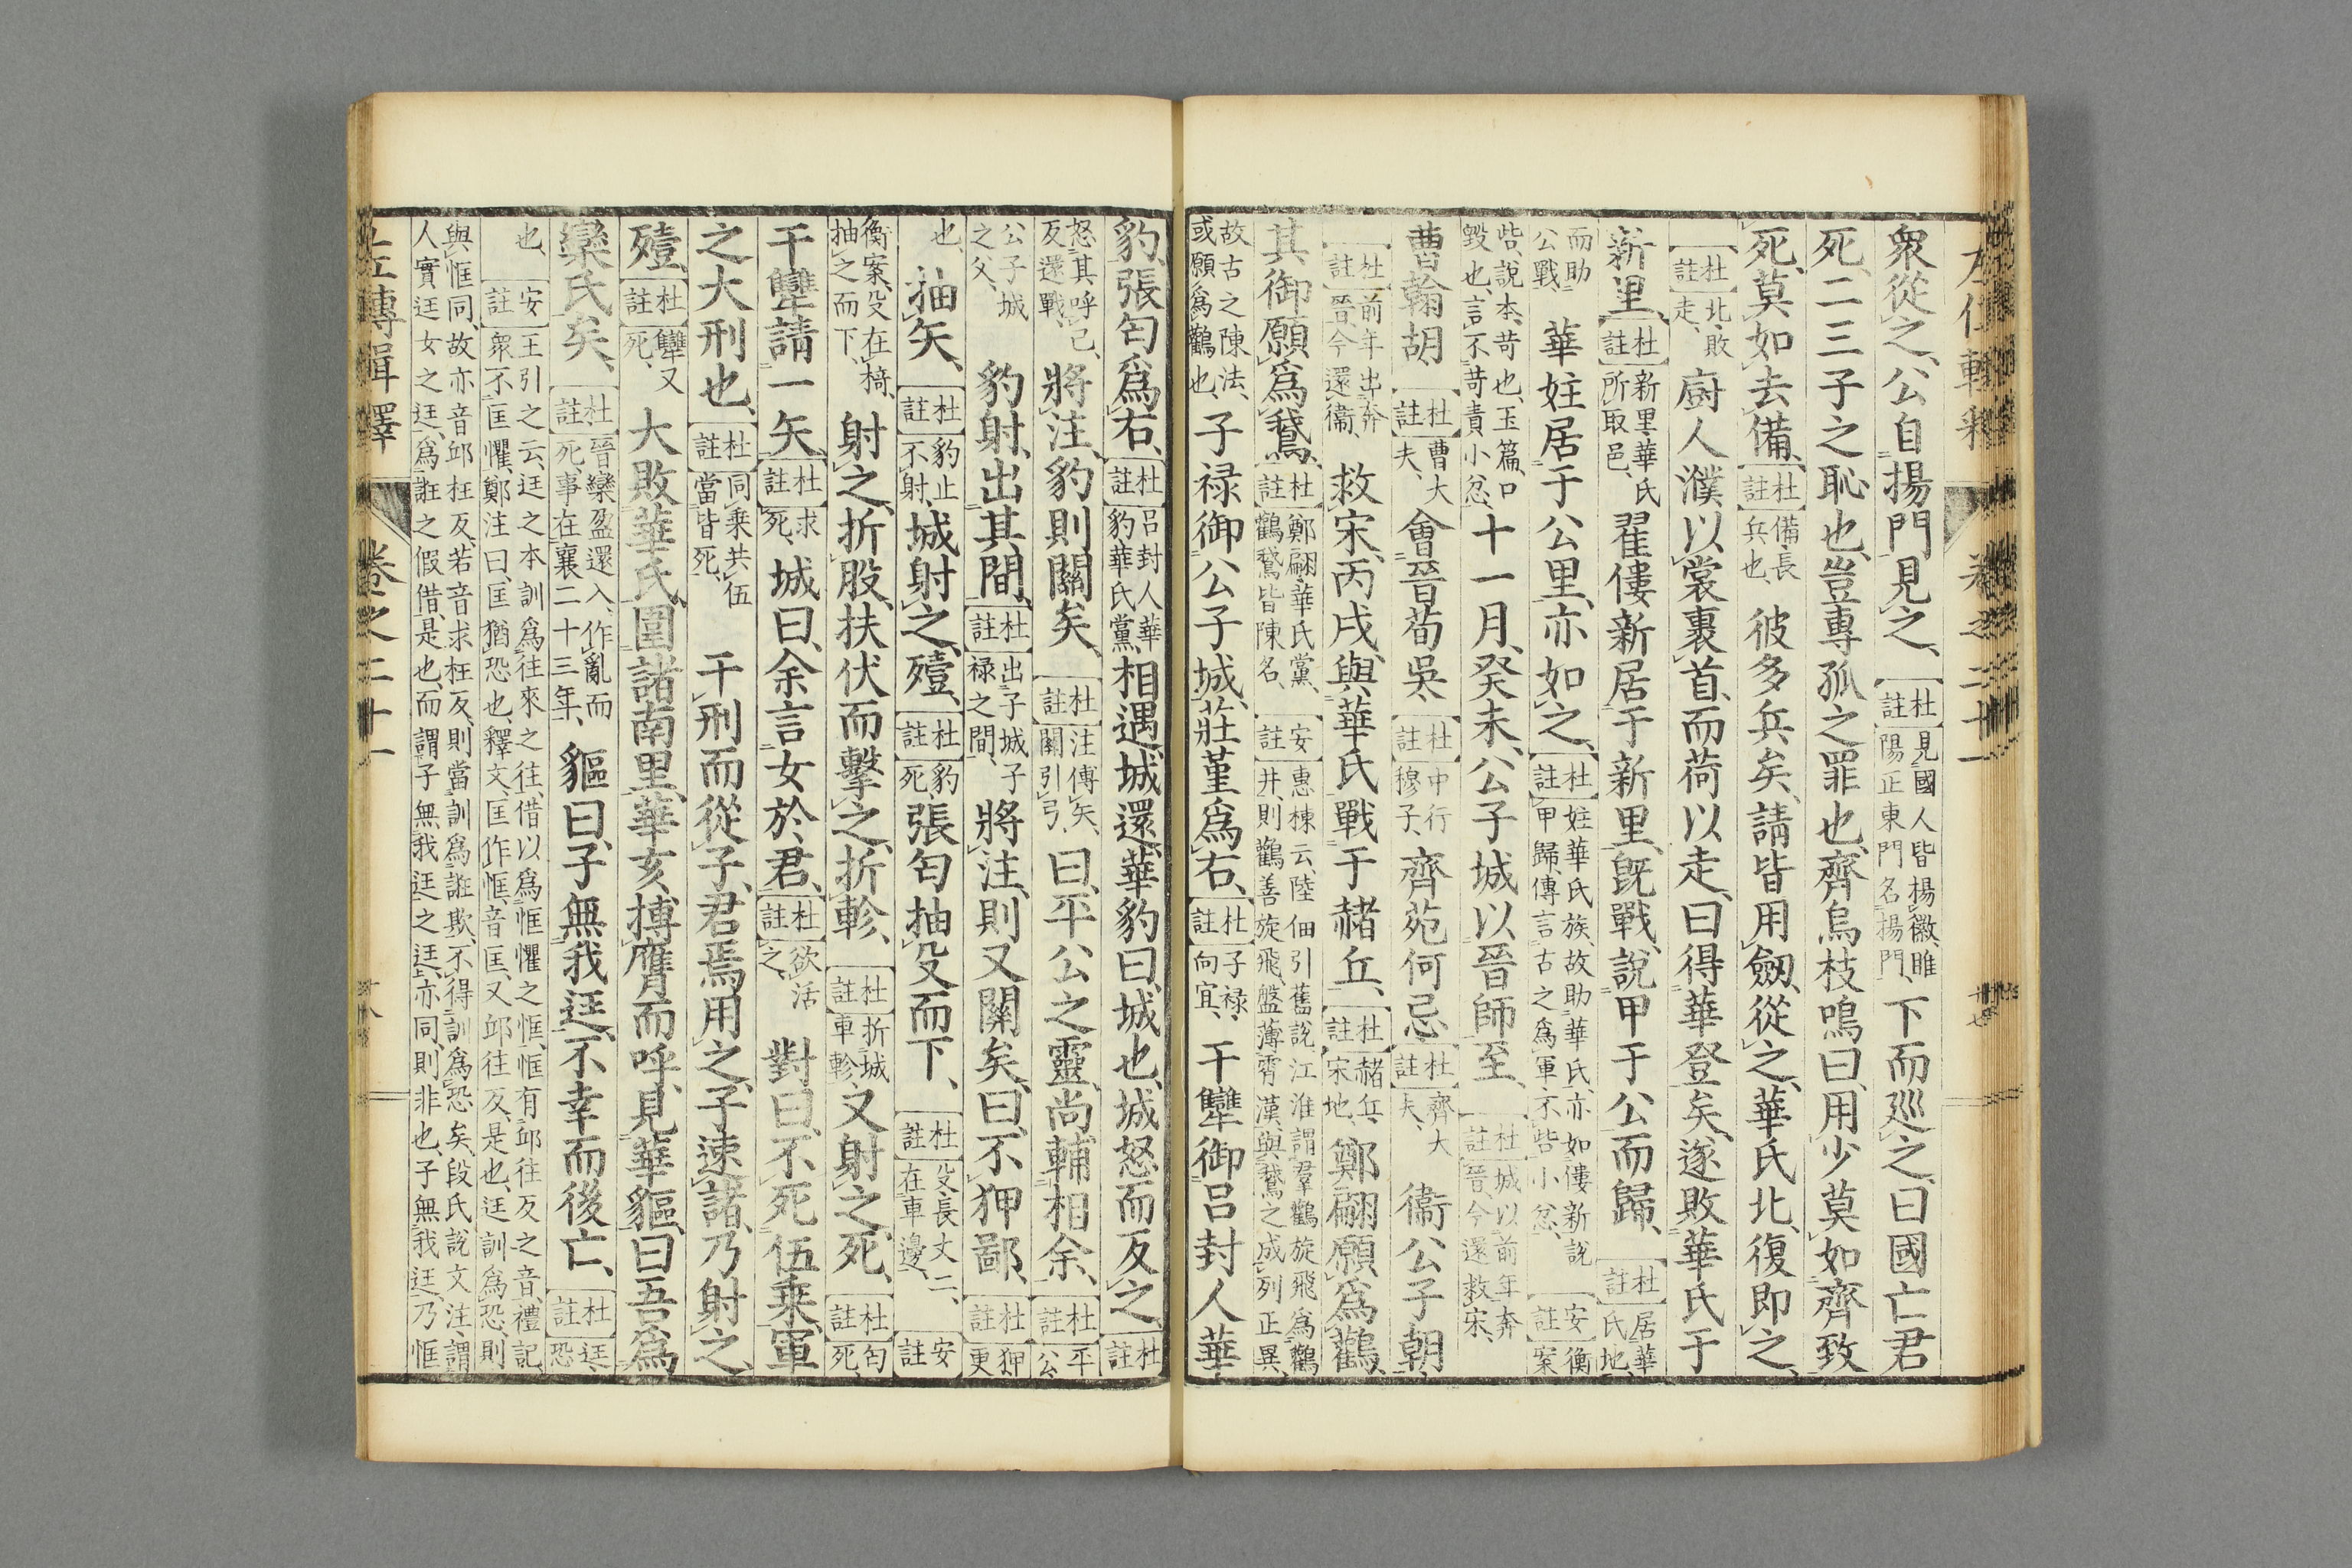 衆從之、公自揚門見之、杜註見國人皆揚徽、睢陽正東門名揚門、下而巡之、曰國亡君
死、二三子之恥也、豈專孤之罪也、齊烏枝鳴曰、用少莫如齊致
死、莫如去備、杜註備、長兵也、彼多兵矣、請皆用劔、從之、華氏北、復即之、
杜註北、敗走、厨人濮以裳裹首、而荷以走、曰得華登矣、遂敗華氏于
新里、杜註新里、華氏所取邑、翟僂新居于新里、既戰、說甲于公而歸、杜註居華氏地、
而助公戰、華妵居于公里、亦如之、杜註妵華氏族、故助華氏、亦如僂新說甲歸、傳言古之爲軍、不呰小忿、安註衡案
呰、說本、苛也、玉篇、口毀也、言不苛責小忿、十一月、癸未、公子城以晉師至、杜註城以前年奔晉、今還救宋、
曹翰胡、杜註曹大夫、會晉荀吳、杜註中行穆子、齊苑何忌、杜註齊大夫、衞公子朝、
杜註前年出奔晉、今還衞、救宋、丙戌、與華氏戰于赭丘、杜註赭丘、宋地、鄭翩願爲鸛、
其御願爲鵞、杜註鄭翩、華氏黨、鸛鵞皆陳名、安註惠棟云、陸佃引舊說、江淮謂羣鸛旋飛爲鸛井、則鸛善旋飛、盤薄霄漢、與鵞之成列正異、
故古之陳法、或願爲鸛也、子禄御公子城、莊堇爲右、杜註子禄、向宜、干犫御呂封人華
豹、張匄爲右、杜註呂封人華豹華氏黨、相遇、城還、華豹曰、城也、城怒而反之、杜註
怒其呼己、反還戰、將注、豹則關矣、杜註注傅矢、關引弓、曰、平公之靈、尚輔相余、杜註平公、
公子城之父、豹射、出其間、杜註出子城子禄之間、將注、則又關矣、曰、不狎鄙、杜註狎更
也、抽矢、杜註豹止不射、城射之、殪、杜註豹死、張匄抽殳而下、杜註殳長丈二、在車邊、安註
衡案、殳在椅、抽之而下、射之、折股、扶伏而擊之、折軫、杜註折城車軫、又射之、死、杜註匄死、
干犫請一矢、杜註求死、城曰、余言女於君、杜註欲活之、對曰、不死伍乘、軍
之大刑也、杜註同乘共伍當皆死、干刑而從子、君焉用之、子速諸、乃射之、
殪、杜註犫又死、大敗華氏、圍諸南里、華亥、搏膺而呼、見華貙、曰吾爲
欒氏矣、杜註晉欒盈還入、作亂而死、事在襄二十三年、貙曰、子無我迋、不幸而後亡、杜註迋、恐
也、安註王引之云、迋之本訓爲往來之往、借以爲恇懼之恇、恇有邱往反之音、禮記、衆不匡懼、鄭注曰、匡猶恐也、釋文、匡作恇、音匡、又邱往反、是也、迋訓爲恐、則
與恇同、故亦音邱枉反、若音求枉反、則當訓爲誑欺、不得訓爲恐矣、段氏說文注、謂人實迋女之迋、爲誑之假借、是也、而謂子無我迋之迋、亦同、則非也、子無我迋、乃恇
左傳輯釋 卷之二十一